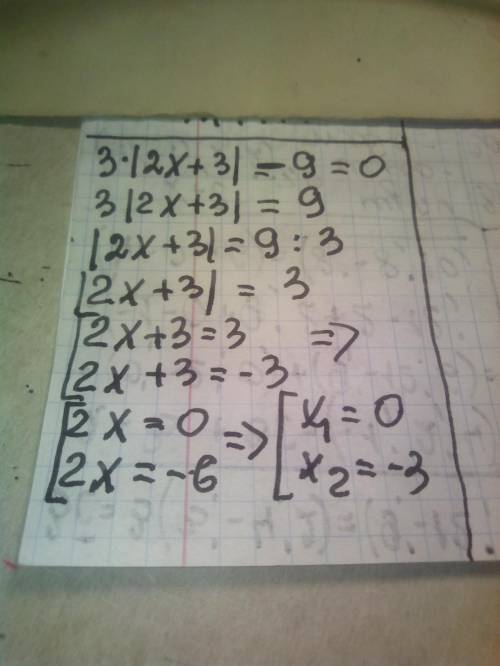 3·|2x+3| - 9 = 0
3|2x+3| = 9
|2x+3| = 9 : 3
|2x+3| = 3
[2x+3=3 =>
[2x+3=-3
[2x=0 => [x₁=0
[2x=-6 [x₂=-3